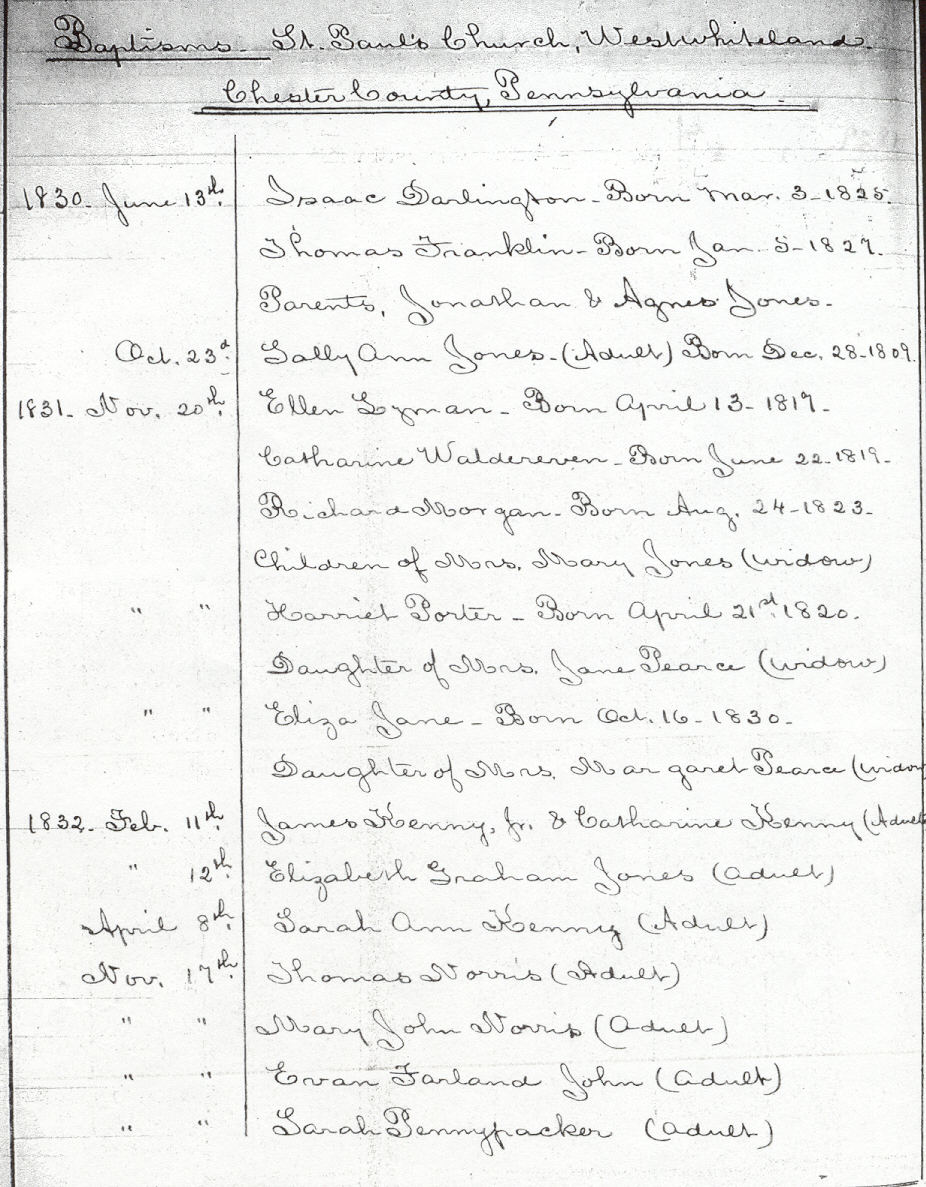 Baptisms - St. Paul's Church, Westwhiteland.
Chester County, Pennsylvania.
1830. June 13th. Isaac Darlington - Born Mar. 3-1825.
Thomas Franklin - Born Jan. 5-1827.
Parents, Jonathan & Agnes Jones.
Oct. 23d. Sally Ann Jones - (Adult) Born Dec. 28-1809.
1831. Nov. 20th. Ellen Lyman - Born April 13-1817.
Catharine Waldereven - Born June 22-1819.
Richard Morgan - Born Aug. 24-1823.
Children of Mrs. Mary Jones (widow)
" " Harriet Porter - Born April 21st 1820.
Daughter of Mrs. Jane Pearce (widow)
" " Eliza Jane - Born Oct. 16-1830.
Daughter of Mrs. Margaret Pearce (widow
1832. Feb. 11th. James Kenny, Jr. & Catharine Kenny (Adult
" 12th. Elizabeth Graham Jones (adult)
April 8th. Sarah Ann Kenny (Adult)
Nov. 17th. Thomas Norris (Adult)
" " Mary John Norris (adult)
" " Evan Farland John (adult)
" " Sarah Pennypacker (adult)